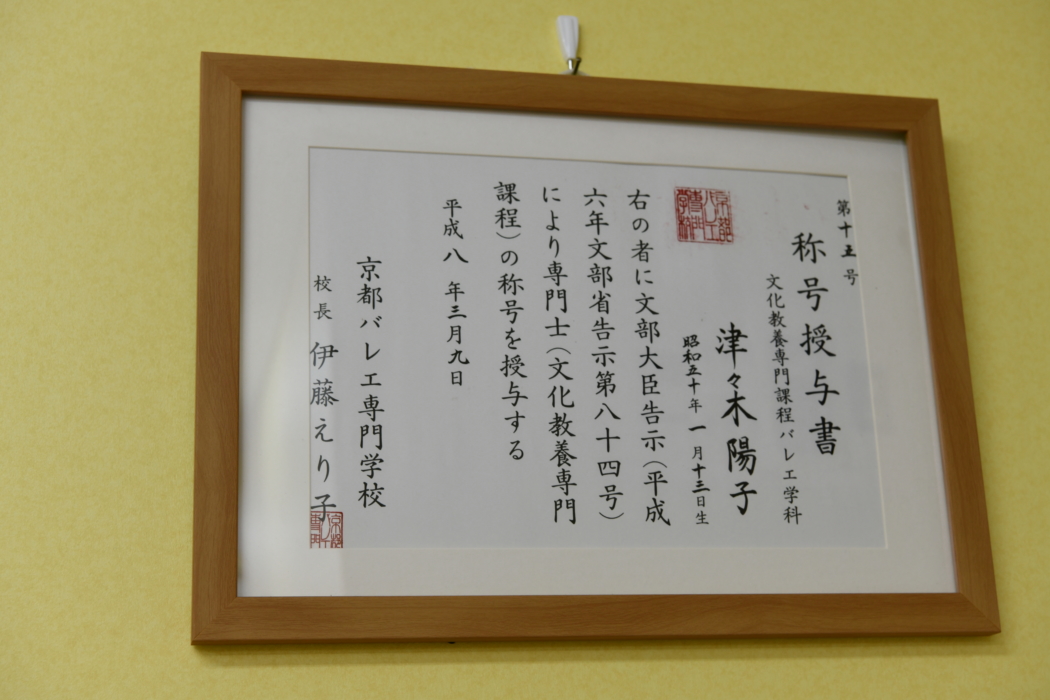 第十五号
称号授与書
文化教養専門課程バレエ学科
津々木陽子
昭和五十年一月十三日生
京都バレエ専門学校
右の者に文部大臣告示（平成
六年文部省告示第八十四号）
により専門士（文化教養専門
課程）の称号を授与する
平成八年三月九日
京都バレエ専門学校
校長 伊藤えり子